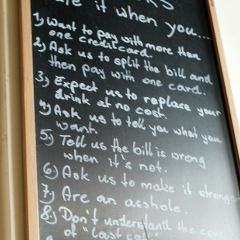 ate it when you...
1) Want to pay with more than
one credit card.
2) Ask us to split the bill and
then pay with one card.
3) Expect us to replace your
drink at no cost.
4) Ask us to tell you what you
want.
5) Tell us the bill is wrong
when it's not.
6) Ask us to make it stronger
7) Are an asshole.
8) Don't understand the
of "last